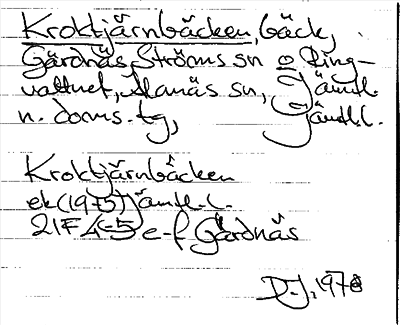 Kroktjärnbäcken, bäck,
Gärdnäs Ströms sn o Ring-
vattnet, Alanäs sn, Jämtl.
n. doms.tg, Jämtl.l.
Kroktjärnbäcken
ek (1975) Jämtl.l.
21F 4-5 e-f Gärdnäs
D-J, 1978